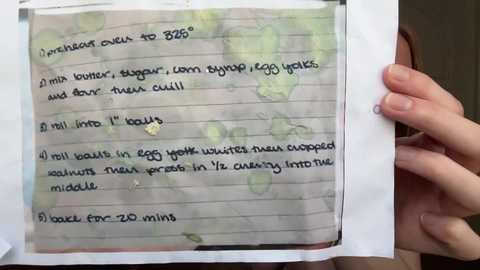 1) preheat oven to 325°
2) mix butter, sugar, corn syrup, egg yolks
and flour then chill
3) roll into 1" balls
4) roll balls in egg yolk whites then chopped
walnuts then press in 1/2 cherry into the
middle
5) bake for 20 mins